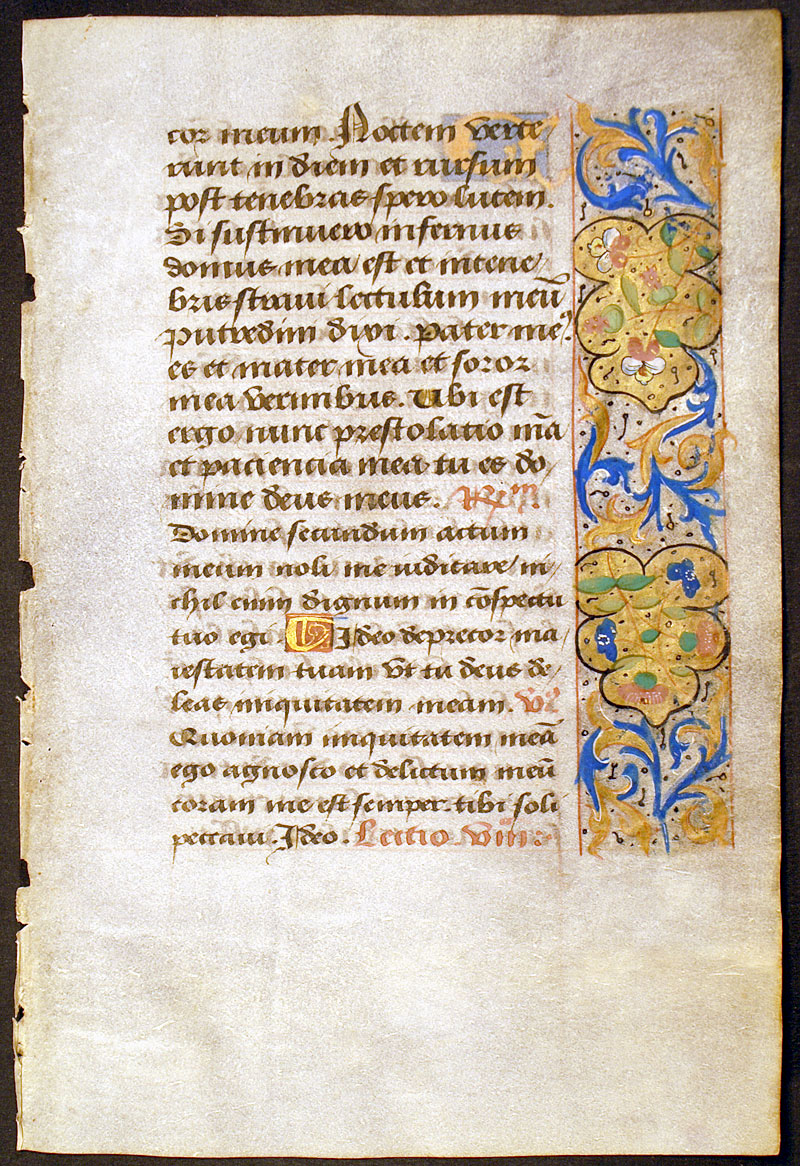 cor meum. Noctem verte
runt in diem et rursum
post tenebras spero lucem.
Si sustinuero infernus
domus mea est et in tene
bris stravi lectulum meū
putredini dixi. pater me⁹
es et mater mea et soror
mea vermibus. Ubi est
ergo nunc prestolatio mēa
et paciencia mea tu es do
mine deus meus.
Domine secundum actum
meum noli me iudicare/ ni
chil enim dignum in cōspectu
tuo egi Ideo deprecor ma
iestatem tuam vt tu deus de
leas iniquitatem meam. v̄s
Quoniam iniquitatem meā
ego agnosco et delictum meū
coram me est semper. tibi soli
peccavi. Ideo. Lectio viiiᵃ: